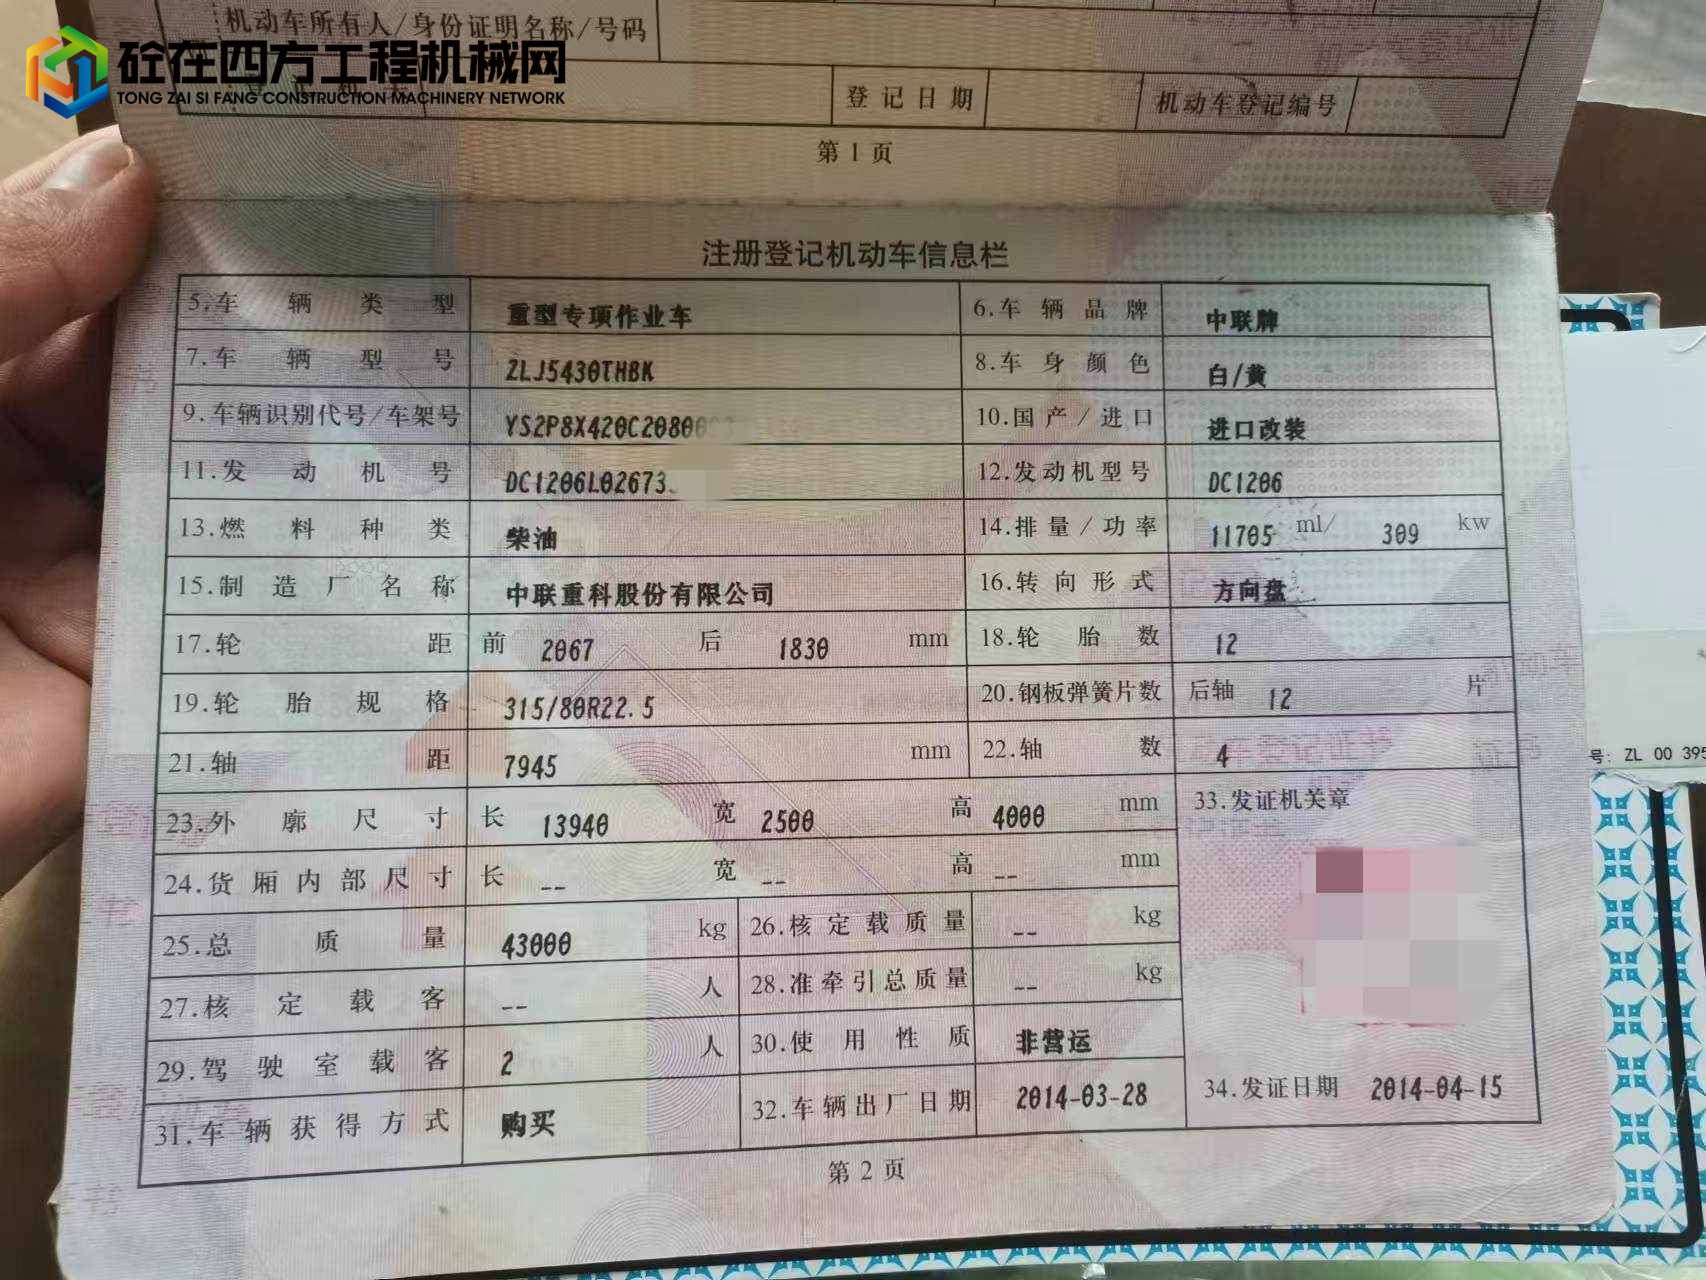 机动车所有人/身份证明名称/号码
砼在四方工程机械网
TONG ZAI SI FANG CONSTRUCTION MACHINERY NETWORK
登记日期 机动车登记编号
第 1 页
注册登记机动车信息栏
5.车辆类型 重型专项作业车 6.车辆品牌 中联牌
7.车辆型号 ZLJ5430THBK 8.车身颜色 白/黄
9.车辆识别代号/车架号 YS2P8X420C20800 10.国产/进口 进口改装
11.发动机号 DC1206L02673 12.发动机型号 DC1206
13.燃料种类 柴油 14.排量/功率 11705 ml/ 309 kw
15.制造厂名称 中联重科股份有限公司 16.转向形式 方向盘
17.轮距 前 2067 后 1830 mm 18.轮胎数 12
19.轮胎规格 315/80R22.5 20.钢板弹簧片数 后轴 12 片
21.轴距 7945 mm 22.轴数 4
23.外廓尺寸 长 13940 宽 2500 高 4000 mm 33.发证机关章
24.货厢内部尺寸 长 -- 宽 -- 高 -- mm
25.总质量 43000 kg 26.核定载质量 -- kg
27.核定载客 -- 人 28.准牵引总质量 -- kg
29.驾驶室载客 2 人 30.使用性质 非营运
31.车辆获得方式 购买 32.车辆出厂日期 2014-03-28 34.发证日期 2014-04-15
第 2 页
号: ZL 00 395